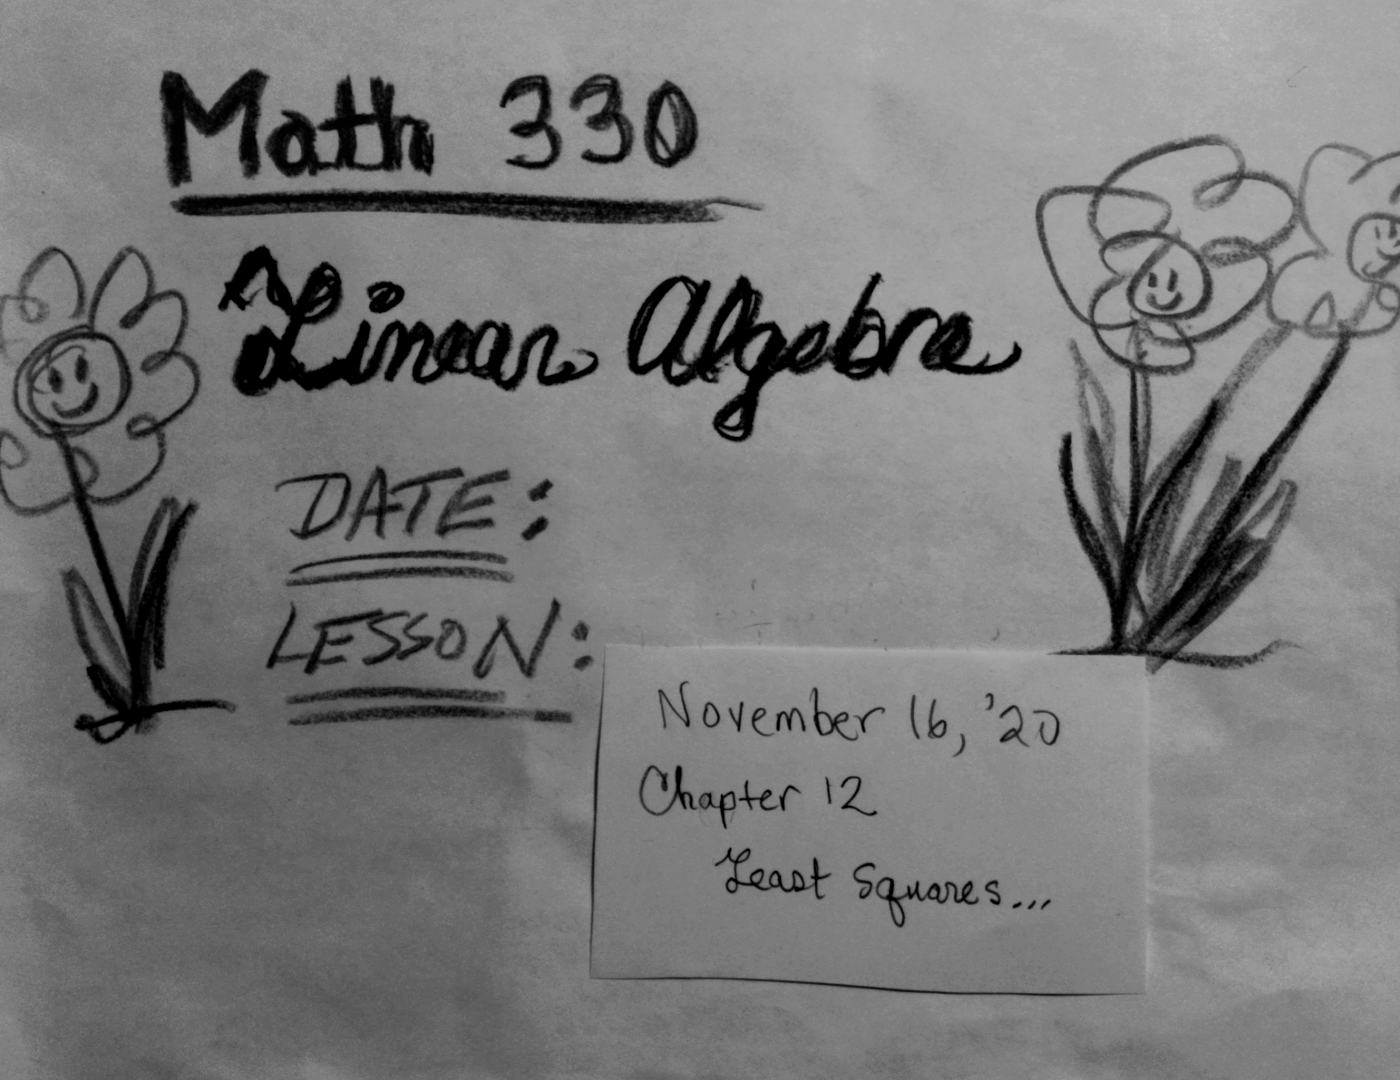 Math 330
Linear Algebra
DATE:
LESSON:
November 16, '20
Chapter 12
Least Squares...